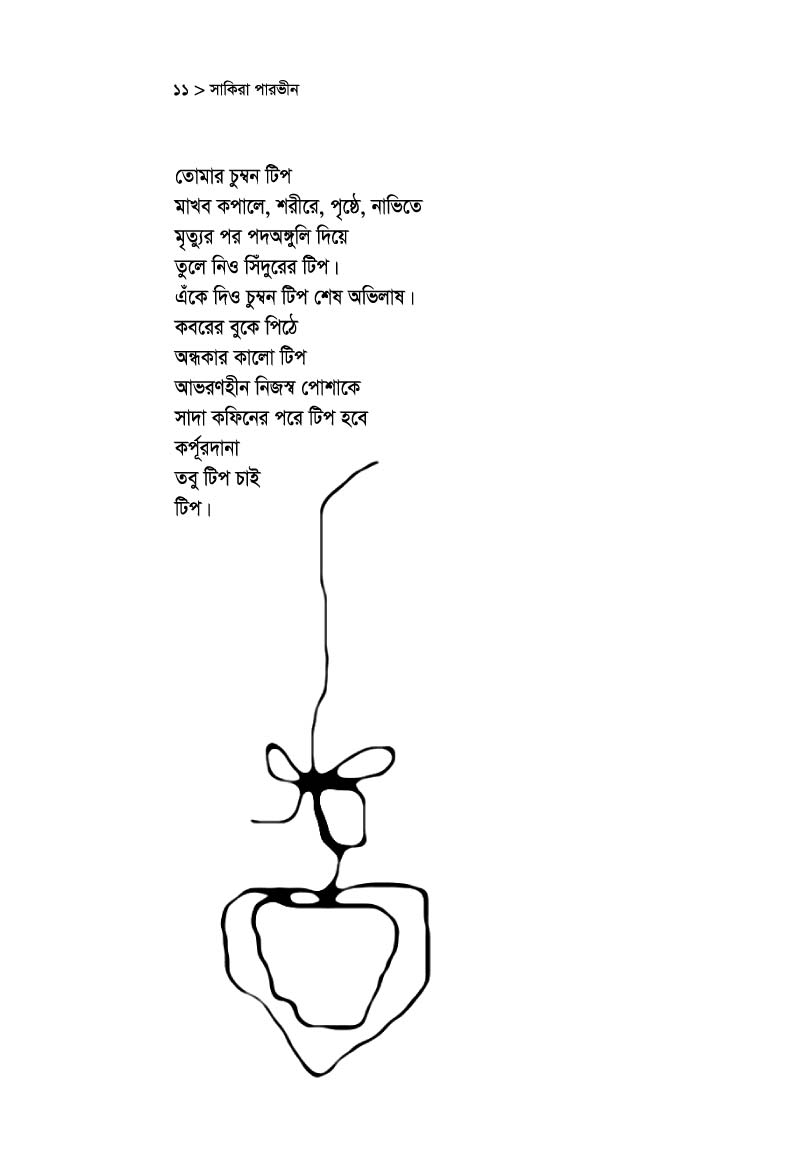 ১১ > সাকিরা পারভীন
তোমার চুম্বন টিপ
মাখব কপালে, শরীরে, পৃষ্ঠে, নাভিতে
মৃত্যুর পর পদঅঙ্গুলি দিয়ে
তুলে নিও সিঁদুরের টিপ।
এঁকে দিও চুম্বন টিপ শেষ অভিলাষ।
কবরের বুকে পিঠে
অন্ধকার কালো টিপ
আভরণহীন নিজস্ব পোশাকে
সাদা কফিনের পরে টিপ হবে
কর্পূরদানা
তবু টিপ চাই
টিপ।